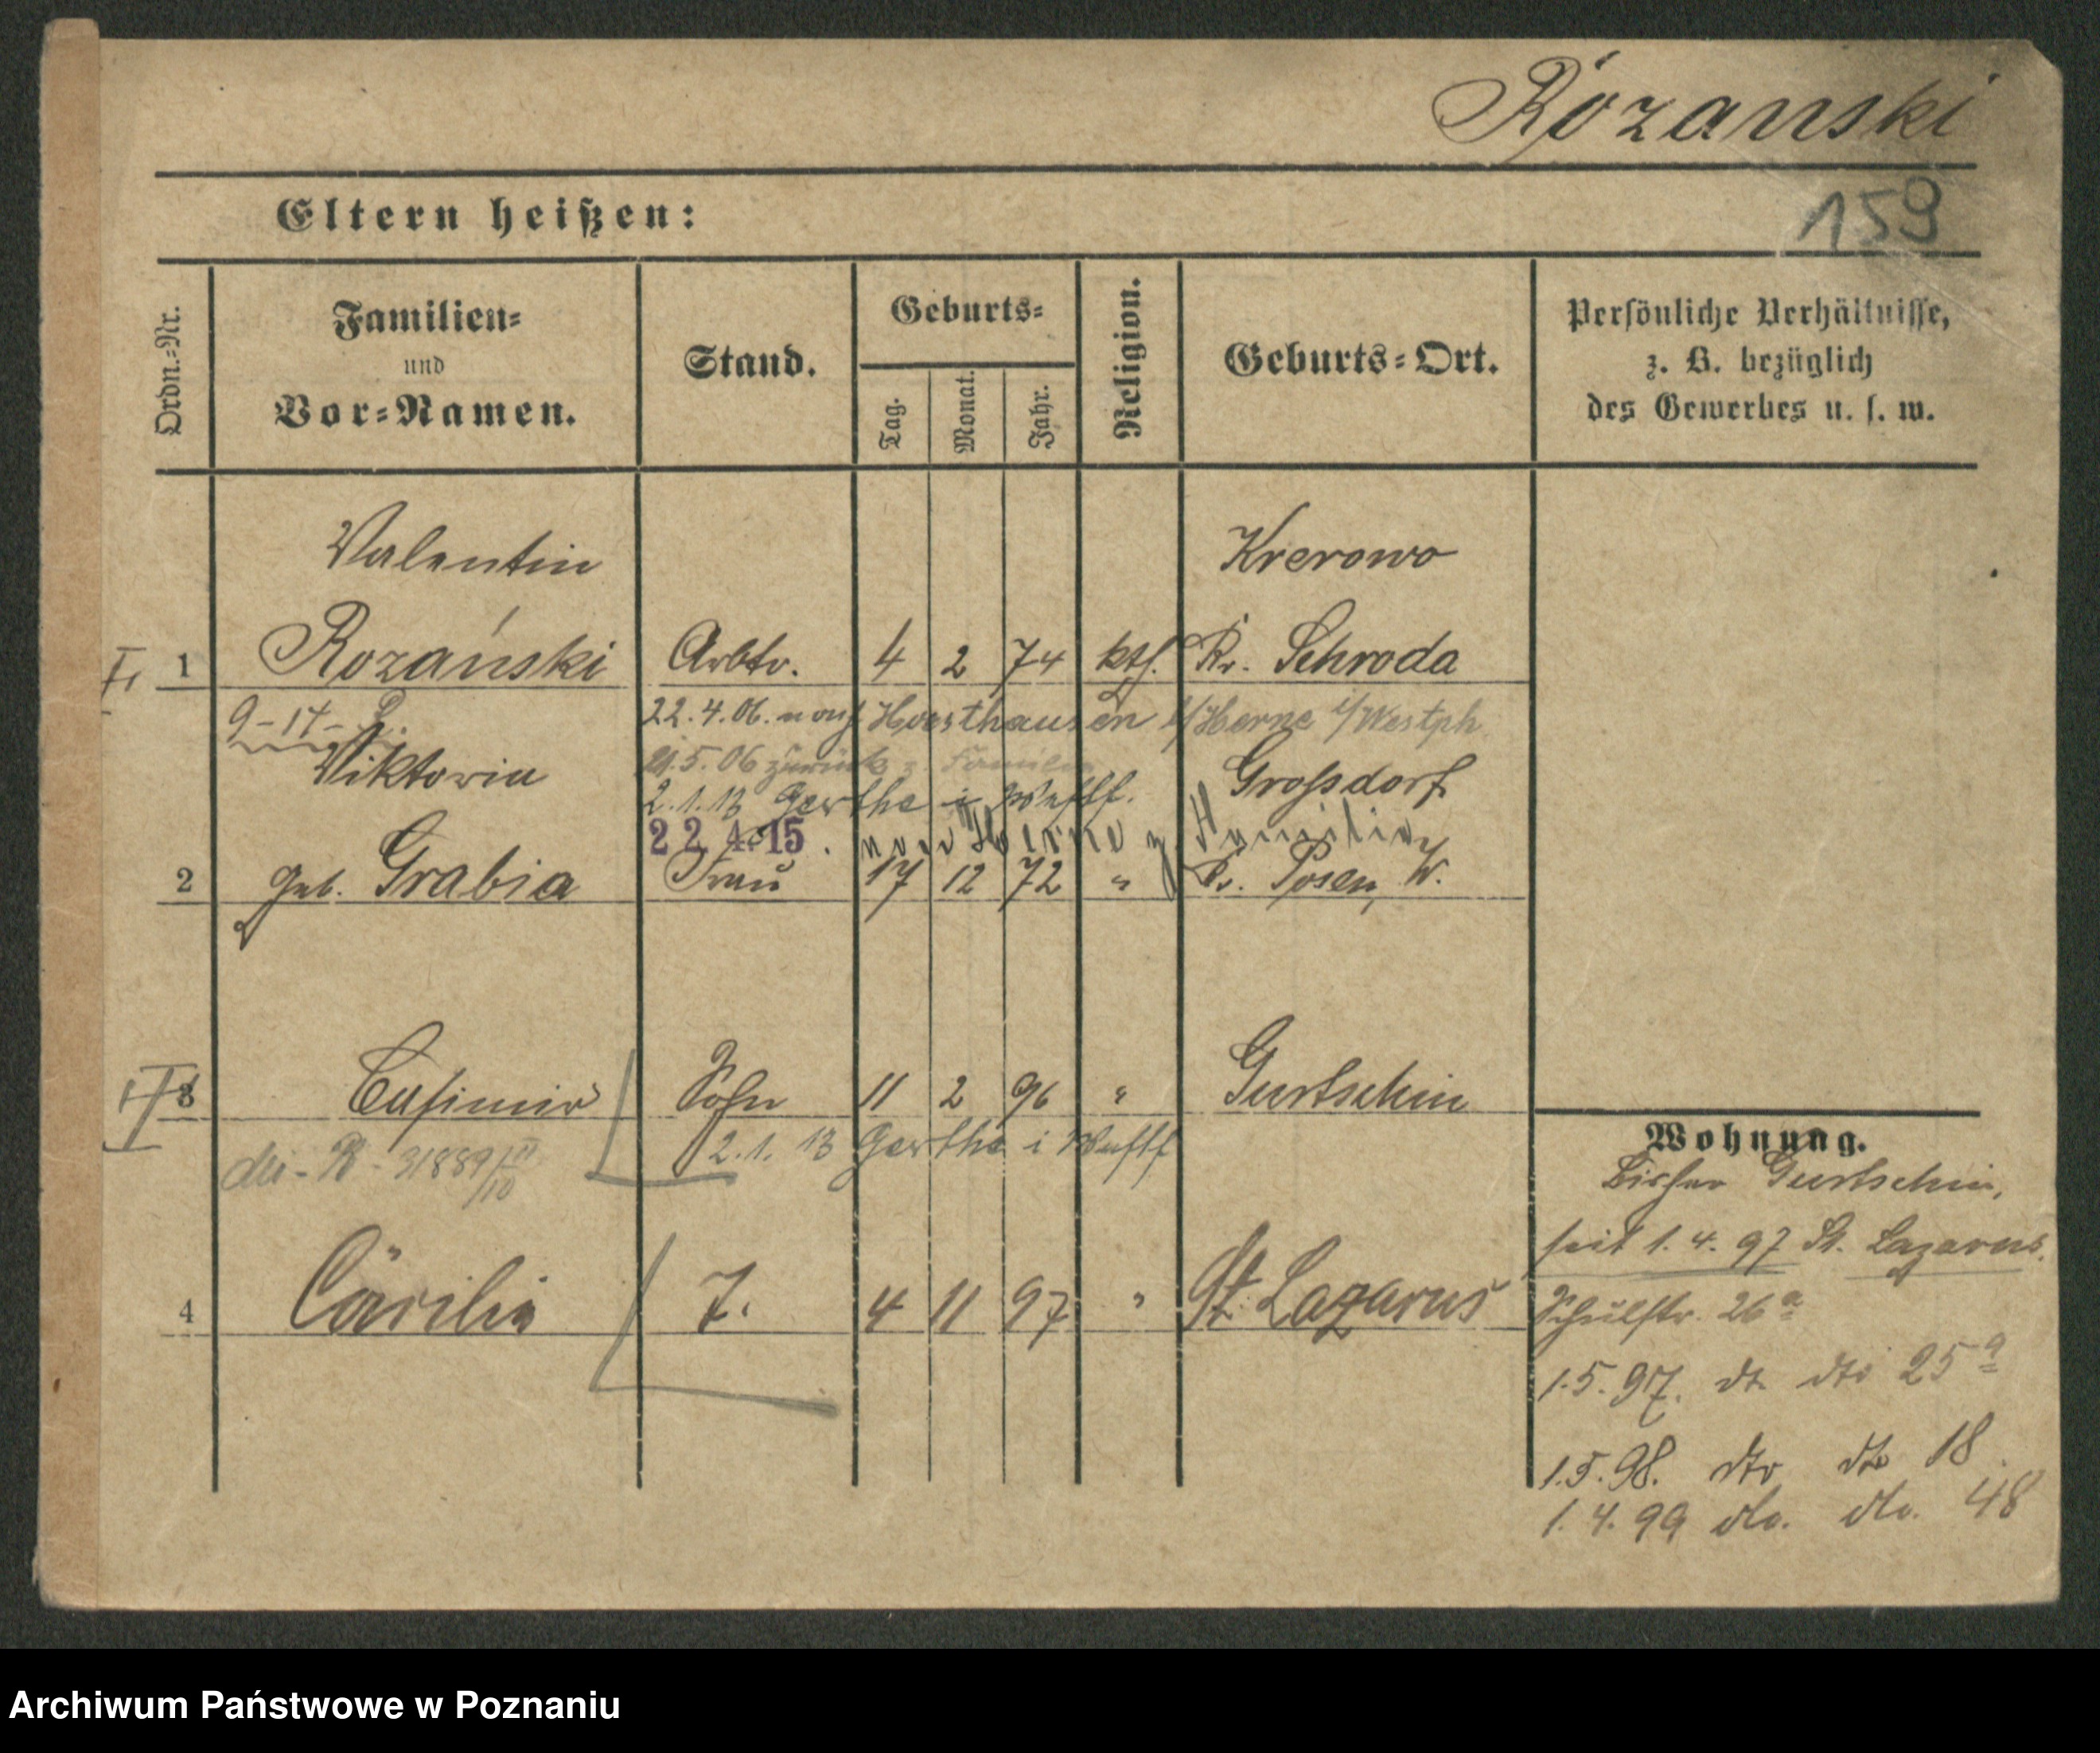 Rózanski
159
Eltern heißen:
Ordn.-Nr.
Familien-
und
Vor-Namen.
Stand.
Geburts-
Tag.
Monat.
Jahr.
Religion.
Geburts-Ort.
Persönliche Verhältnisse,
z. B. bezüglich
des Gewerbes u. s. w.
Valentin
Krerowo
1 Rozański Arbtr. 4 2 74 kth. Kr. Schroda
9-17-
22.4.06. nach Horsthausen b/Herne i/Westph.
Viktoria
21.5.06 zurück z. Familie
Grossdorf
2.1.13 Gerthe i Westf.
22 4. 15. nach Herne z. Familie
2 geb. Grabia Frau 17 12 72 " Kr. Posen, W.
II
3 Casimir Sohn 11 2 96 " Gurtschin
2.1.13 Gerthe i Westf
31889
4 Cäcilie T. 4 11 97 " St. Lazarus
Wohnung.
Bisher Gurtschin,
seit 1.4.97 St. Lazarus.
Schulstr. 26a
1.5.97. dt. dto 25a
1.5.98. dto dto 18.
1.4.99 dto. dto. 48
Archiwum Państwowe w Poznaniu